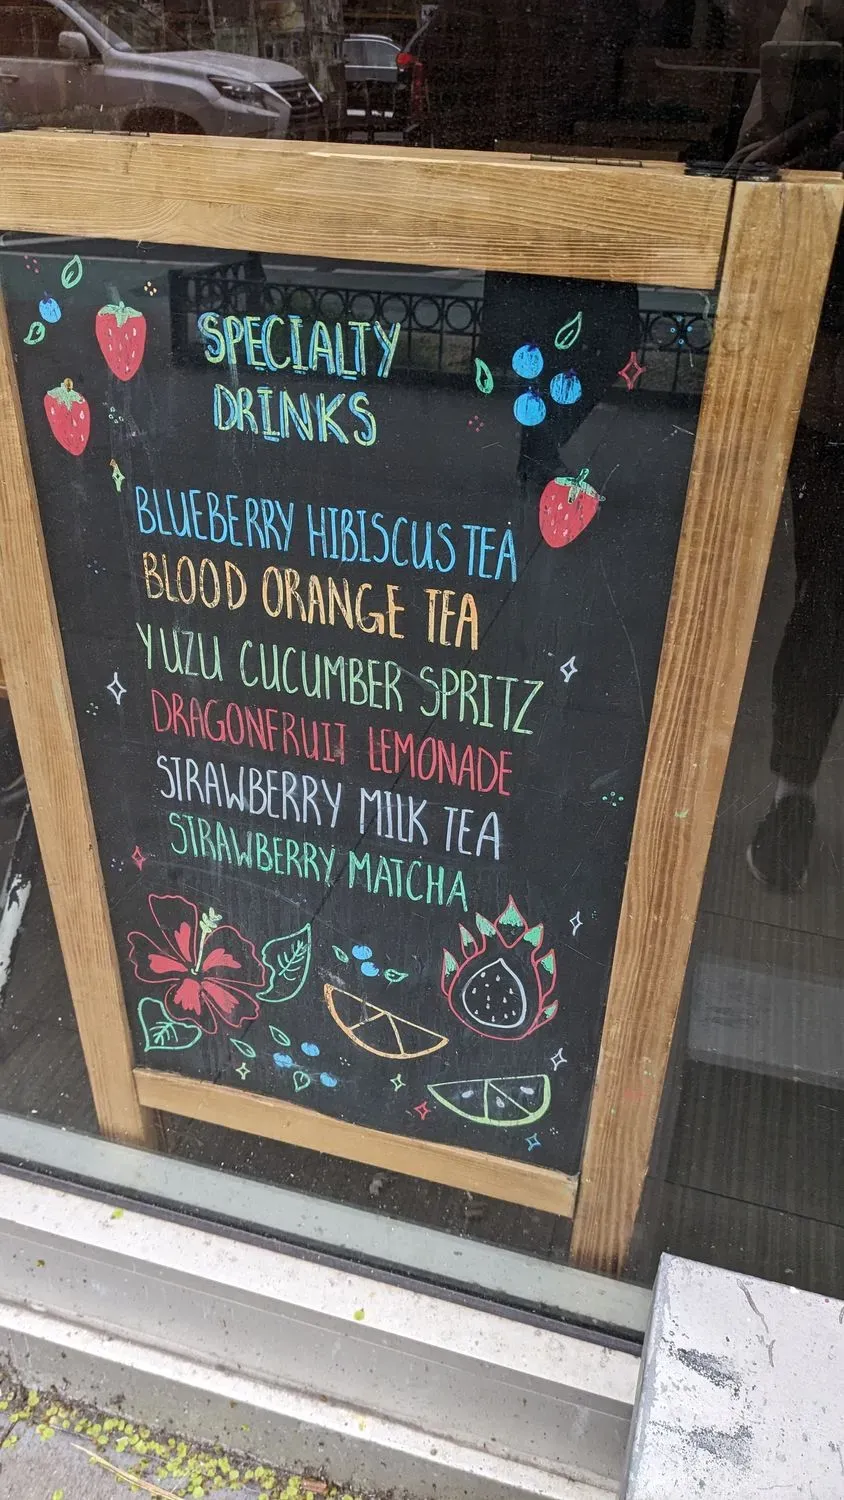 SPECIALTY
DRINKS
BLUEBERRY HIBISCUS TEA
BLOOD ORANGE TEA
YUZU CUCUMBER SPRITZ
DRAGONFRUIT LEMONADE
STRAWBERRY MILK TEA
STRAWBERRY MATCHA